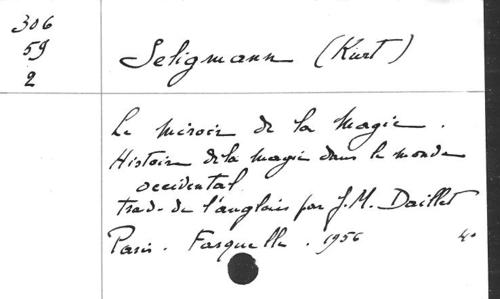 306
59
2
Seligmann (Kurt)
Le miroir de la Magie.
Histoire de la magie dans le monde
occidental
trad. de l'anglais par J.M. Daillet
Paris. Fasquelle. 1956 4°